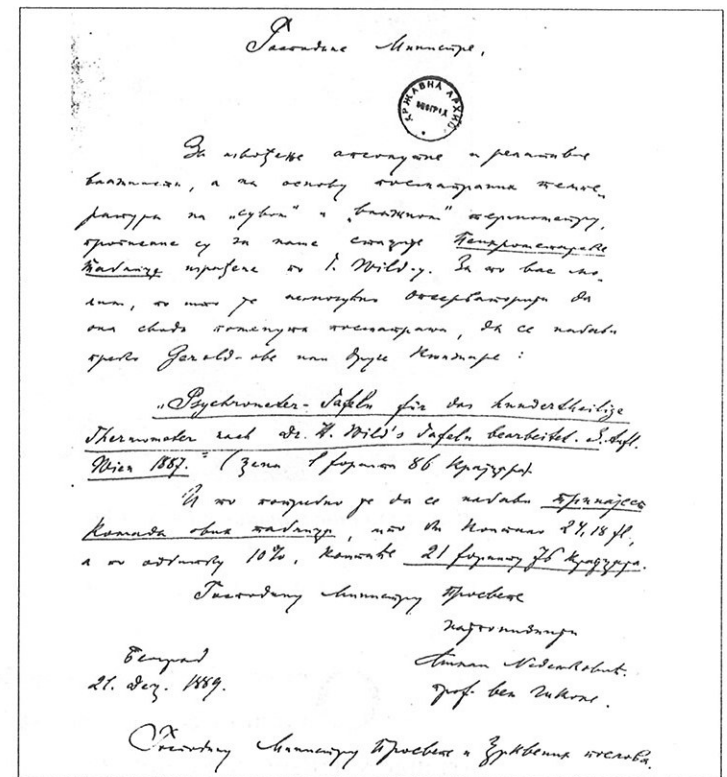 Господине Министре,
ДРЖАВНА АРХИВА
БЕОГРАД
За извођење апсолутне и релативне
влажности, а на основу посматрања темпе-
ратуре на „сувом" и „влажном" термометру,
су за наше стације Психрометарске
Таблице израђене по Г. Wild-у. За то вас мо-
лим, по што је опсерваторији да
она своја посматрања, да се набави
преко Gerold-ове или друге Књижаре :
„Psychrometer-Tafeln für das hunderttheilige
Thermometer nach Dr. H. Wild's Tafeln bearbeitet. 2. Aufl.
Wien 1887." (цена 1 форинт 86 Крајцара).
И то потребно је да се набави тринајест
Комада ових таблица, што би Коштало 24,18 fl,
а по одбитку 10%, Коштаће 21 форинту 76 Крајцара.
Господину Министру Просвете
најпонизнији
Београд
Милан Недељковић.
21. дец. 1889.
проф. вел. школе.
Господину Министру Просвете и Црквених послова.